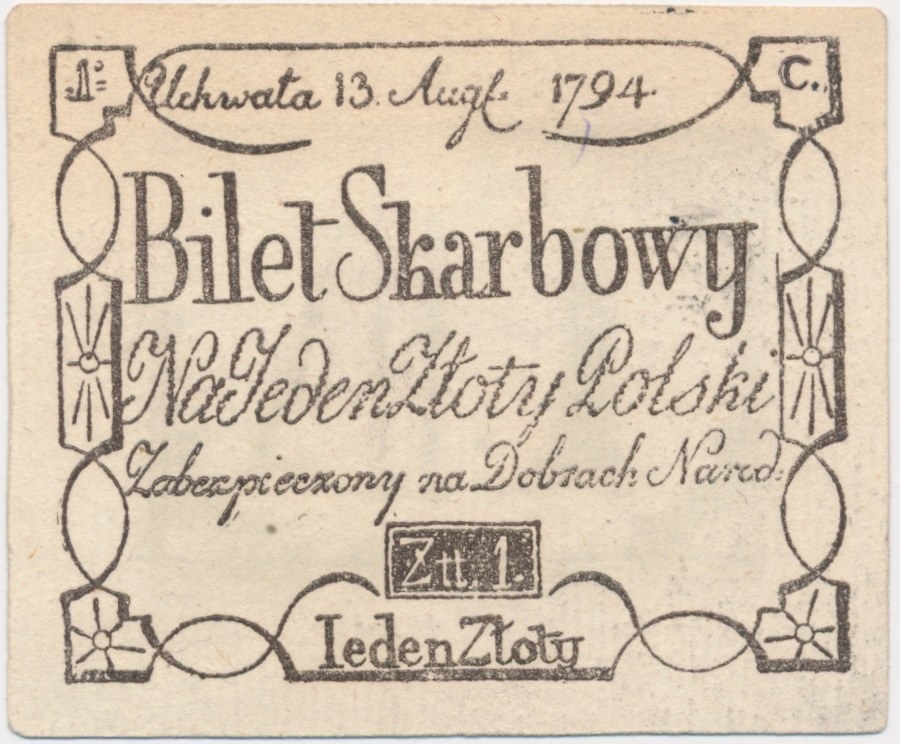 1º= Uchwała 13. Augſ. 1794. C.
Bilet Skarbowy
Na Jeden Złoty Polski
Zabezpieczony na Dobrach Narod:
Złł. 1.
Ieden Złoty